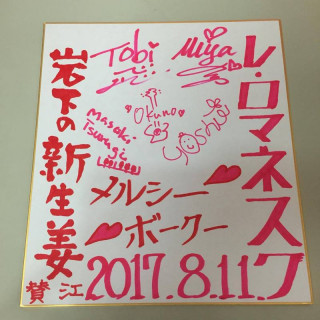 レ・ロマネスク
Tobi
Miya
Okuno
Masaki
Tsurugi
メルシー
ボークー
岩下の新生姜
賛江
2017.8.11.